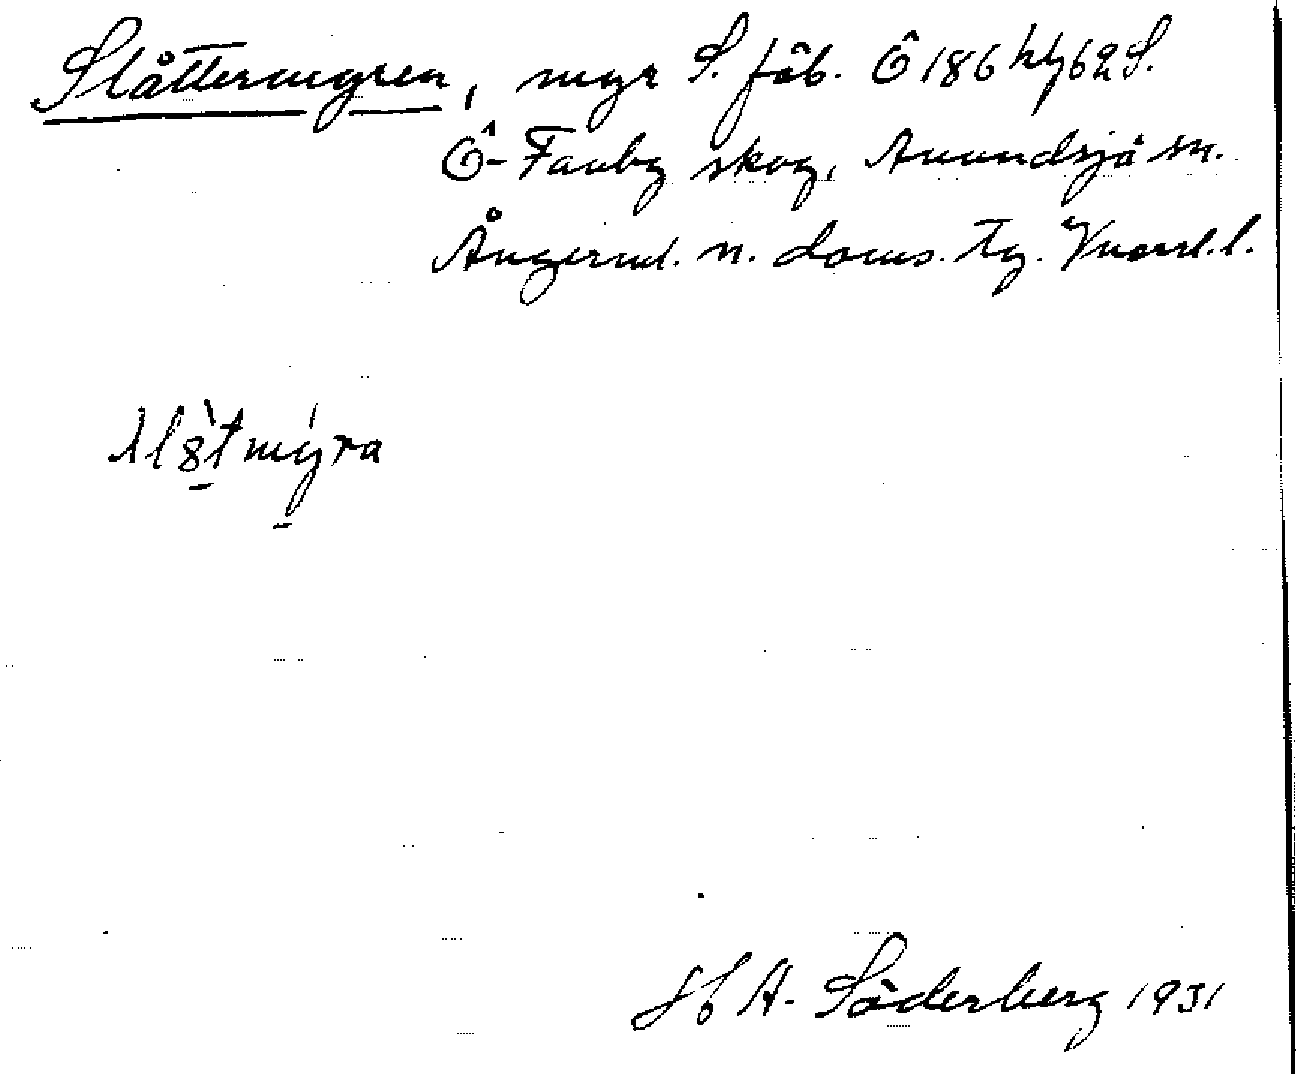 Slåttermyren, myr S. fäb. Ö 186 hg 62 S.
Ö-Fanby skog, Anundsjö sn.
Ångerml. n. doms. Tg. Västernorrl. l.
myra
H A. Söderberg 1931